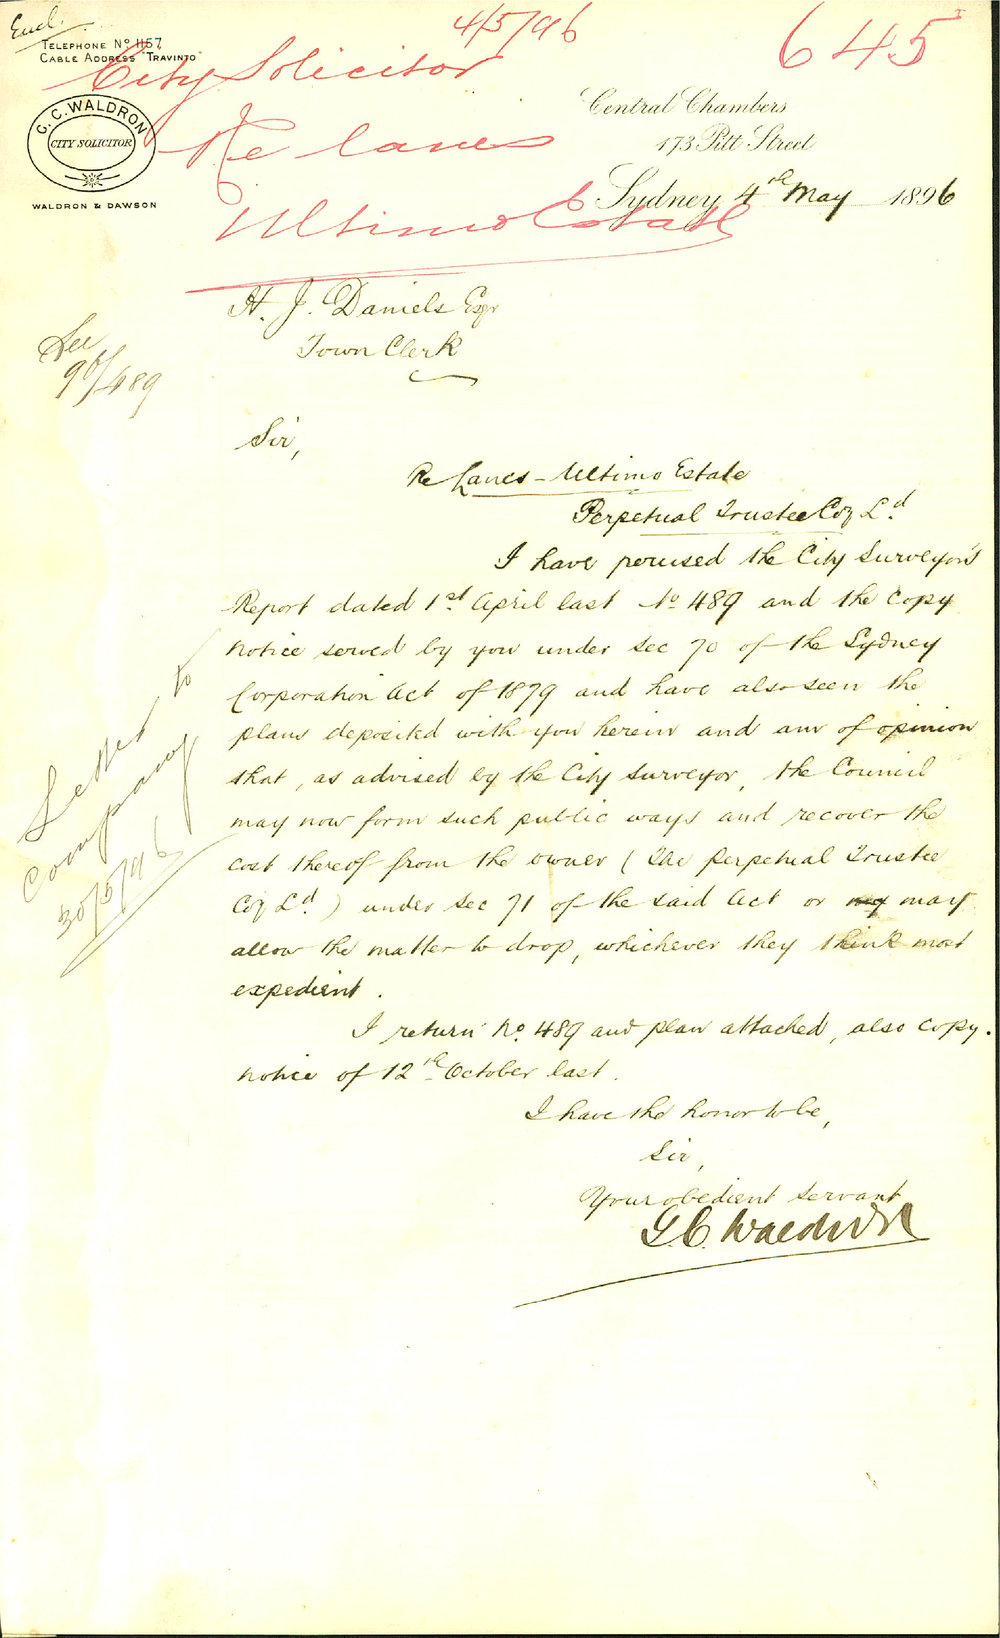 Encl.
4/5/96
645
TELEPHONE No 1157
CABLE ADDRESS "TRAVINTO"
City Solicitor
G. C. WALDRON
CITY SOLICITOR
WALDRON & DAWSON
Re lanes
Ultimo Estate
Central Chambers
173 Pitt Street
Sydney 4th May 1896
H. J. Daniels Esqr
Town Clerk
See
96/489
Sir,
Re Lanes - Ultimo Estate
Perpetual Trustee Coy Ld
I have perused the City Surveyor's
Report dated 1st April last No 489 and the copy
notice served by you under Sec 70 of the Sydney
Corporation Act of 1879 and have also seen the
plans deposited with you herein and am of opinion
that, as advised by the City Surveyor, the Council
may now form such public ways and recover the
cost thereof from the owner (The Perpetual Trustee
Coy Ld.) under Sec 71 of the said Act or may
allow the matter to drop, whichever they think most
expedient.
I return No. 489 and plan attached, also copy
notice of 12th October last.
I have the honor to be,
Sir,
Your obedient servant
G. C. Waldron
Letter to
Company
30/5/96